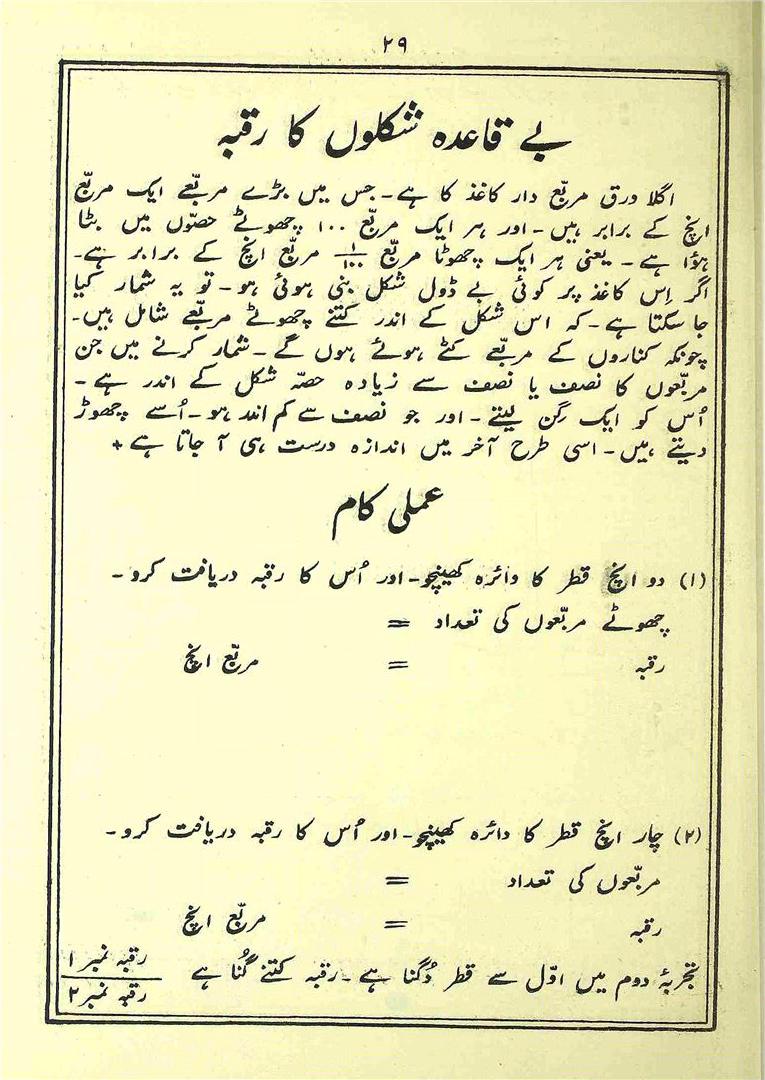 ۲۹
بے قاعدہ شکلوں کا رقبہ
اگلا ورق مربّع دار کاغذ کا ہے۔ جس میں بڑے مربّعے ایک مربّع
انچ کے برابر ہیں۔ اور ہر ایک مربّع ۱۰۰ چھوٹے حصّوں میں بٹا
ہؤا ہے۔ یعنی ہر ایک چھوٹا مربّع ۱/۱۰۰ مربّع انچ کے برابر ہے۔
اگر اِس کاغذ پر کوئی بے ڈول شکل بنی ہوئی ہو۔ تو یہ شمار کیا
جا سکتا ہے۔ کہ اس شکل کے اندر کتنے چھوٹے مربّعے شامل ہیں۔
چونکہ کناروں کے مربّعے کٹے ہوئے ہوں گے۔ شمار کرنے میں جن
مربّعوں کا نصف یا نصف سے زیادہ حصّہ شکل کے اندر ہے۔
اُس کو ایک گن لیتے۔ اور جو نصف سے کم اند ہو۔ اُسے چھوڑ
دیتے ہیں۔ اسی طرح آخر میں اندازہ درست ہی آ جاتا ہے +
عملی کام
(۱) دو انچ قطر کا دائرہ کھینچو۔ اور اُس کا رقبہ دریافت کرو۔
چھوٹے مربّعوں کی تعداد =
رقبہ = مربّع انچ
(۲) چار انچ قطر کا دائرہ کھینچو۔ اور اُس کا رقبہ دریافت کرو۔
مربّعوں کی تعداد =
رقبہ = مربّع انچ
تجربۂ دوم میں اوّل سے قطر دُگنا ہے۔ رقبہ کتنے گُنا ہے رقبہ نمبر ۱ / رقبہ نمبر ۲